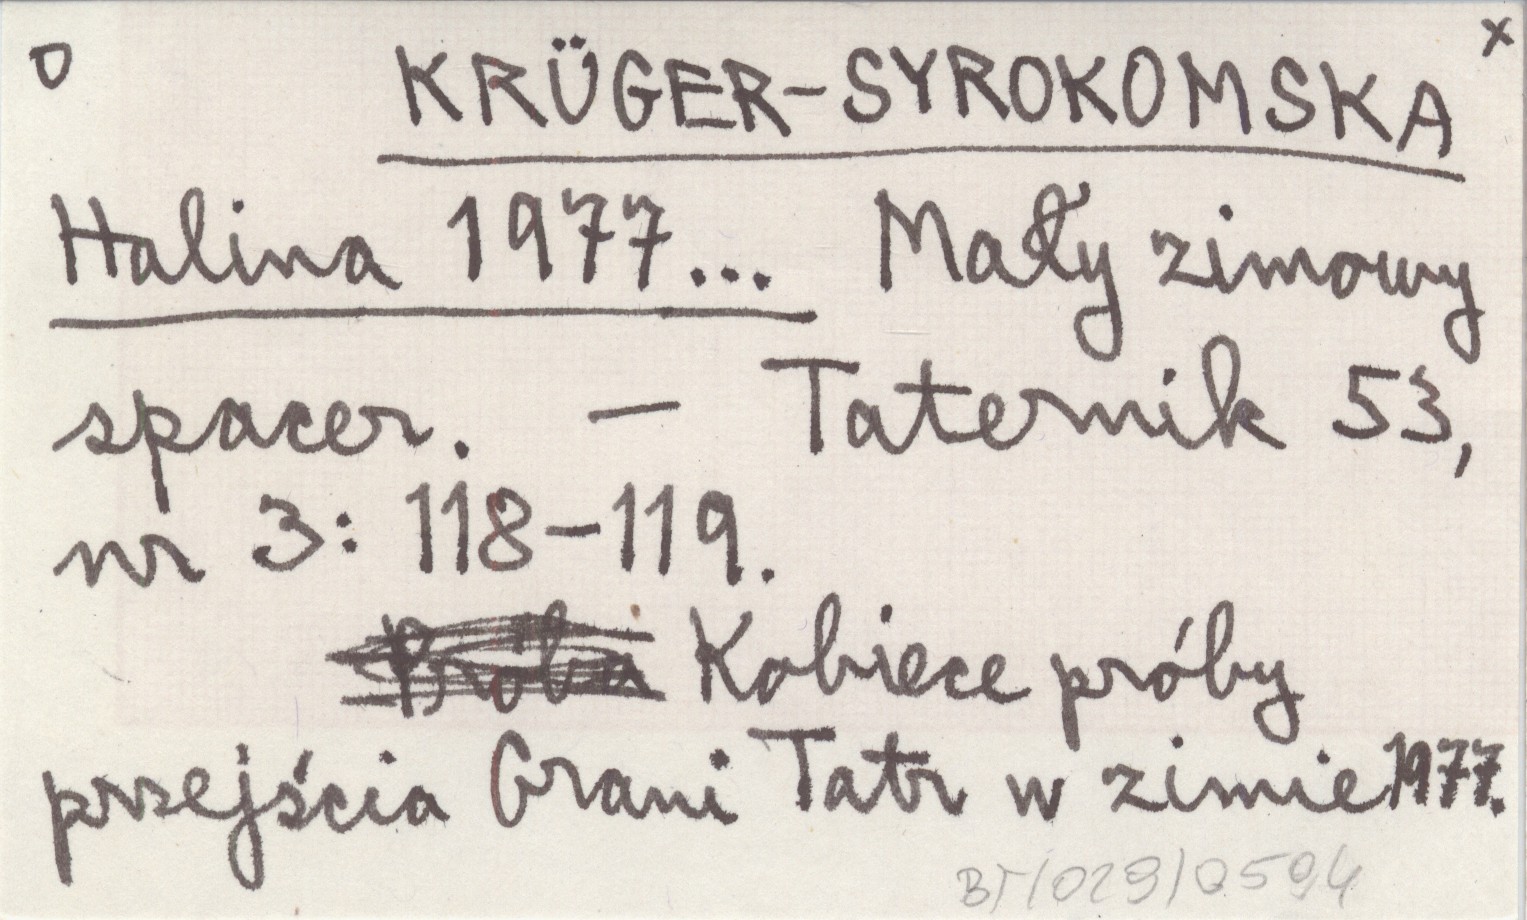 O KRÜGER-SYROKOMSKA x
Halina 1977... Mały zimowy
spacer. – Taternik 53,
nr 3: 118–119.
Kobiece próby
przejścia Grani Tatr w zimie 1977.
BT/029/0594